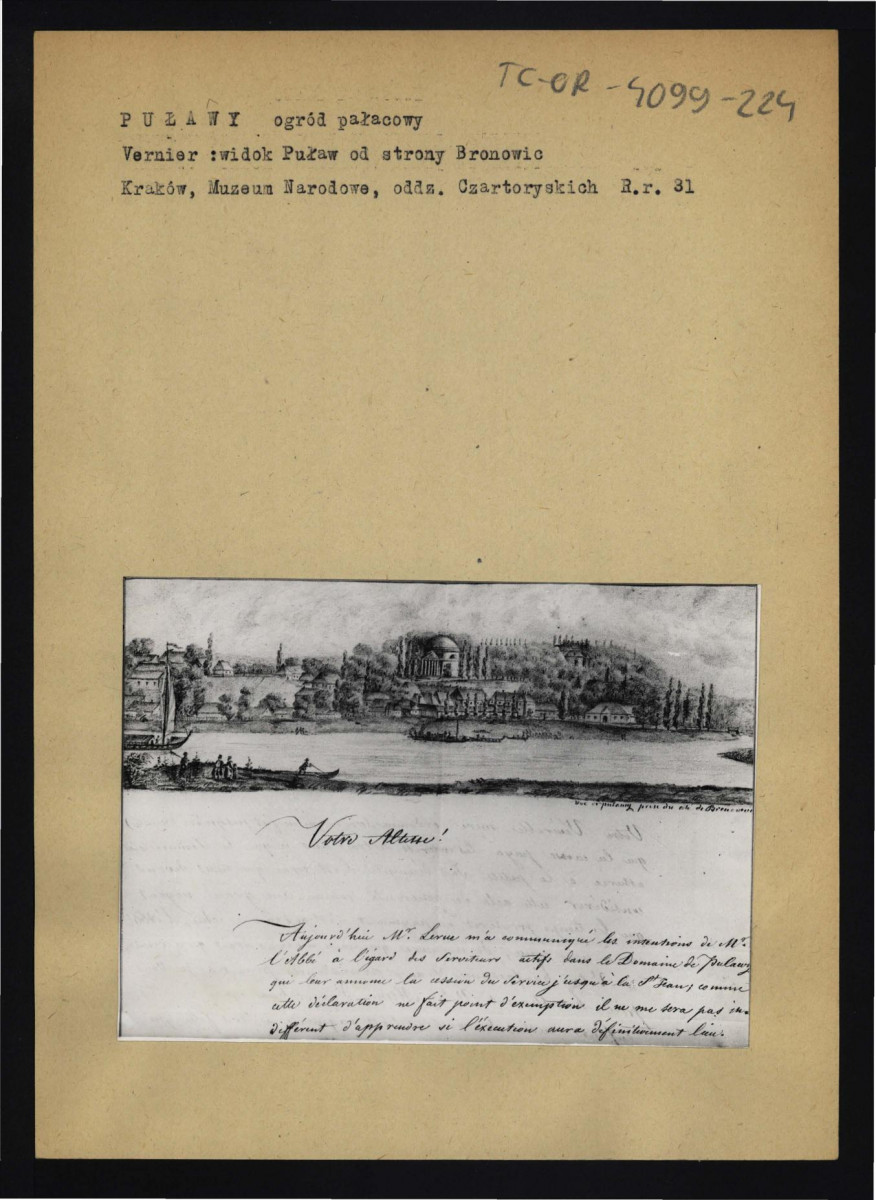 TC-OR-4099-224
PUŁAWY ogród pałacowy
Vernier :widok Puław od strony Bronowic
Kraków, Muzeum Narodowe, oddz. Czartoryskich R.r. 31
prise du côté de
Votre Altesse!
Aujourd'hui Mr. Lerue m'a communiqué les intentions de Mr.
l'Abbé à l'égard des Serviteurs actifs dans le Domaine de Pulawy
qui leur annonce la cession du Service j'usqu'à la St Jean; comme
cette déclaration ne fait point d'exemption il ne me sera pas in=
différent d'apprendre si l'éxécution aura définitivement lieu.